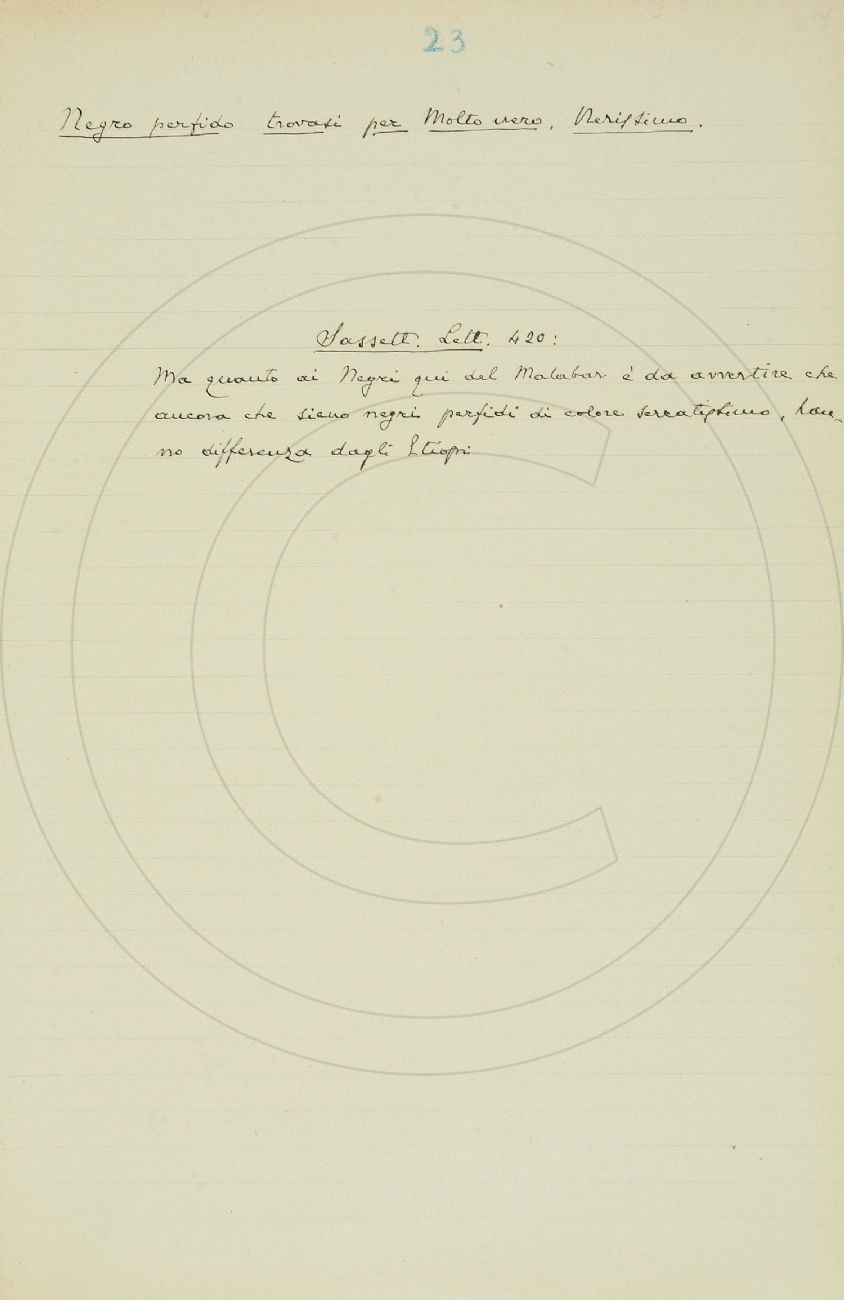 23
Negro perfido trovasi per Molto nero, Nerissimo.
Sassett. Lett. 420:
Ma quanto ai Negri qui del Malabar è da avvertire che
ancora che sieno negri perfidi di colore serratissimo, han-
no differenza dagli Etiopi